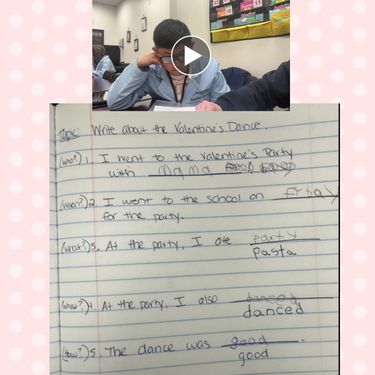 Topic: Write about the Valentine's Dance.
(who?) 1. I went to the Valentine's Party
with Mama
(when?) 2 I went to the school on Friday
for the party.
(what?) 3. At the party, I ate party
pasta
(How?) 4. At the party, I also danced
danced
(How?) 5. The dance was good.
good